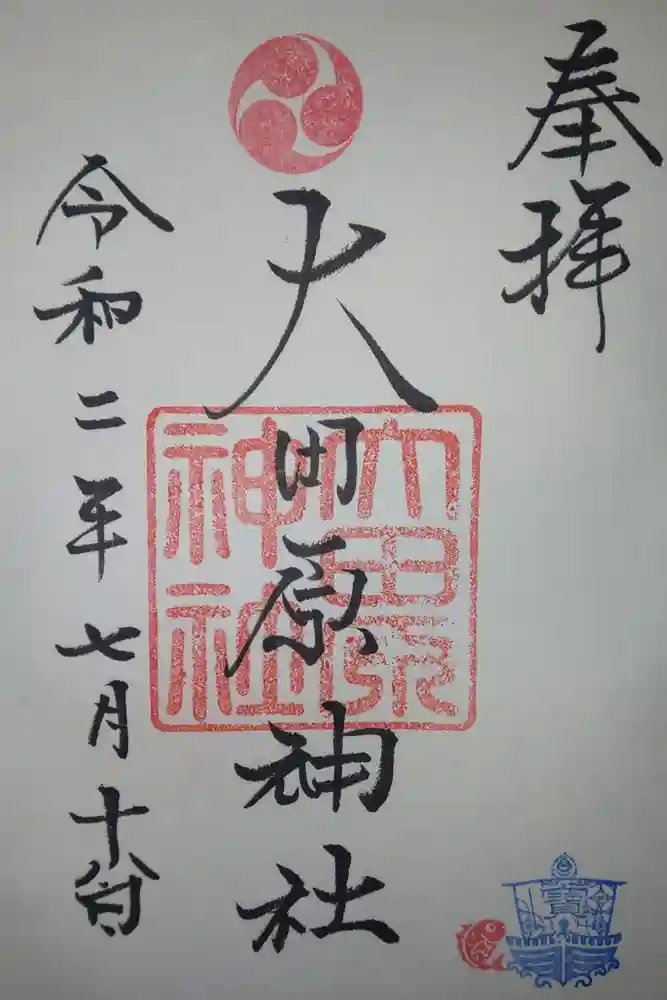 奉拝
大田原神社
令和二年七月十八日
大田原
神社
寳